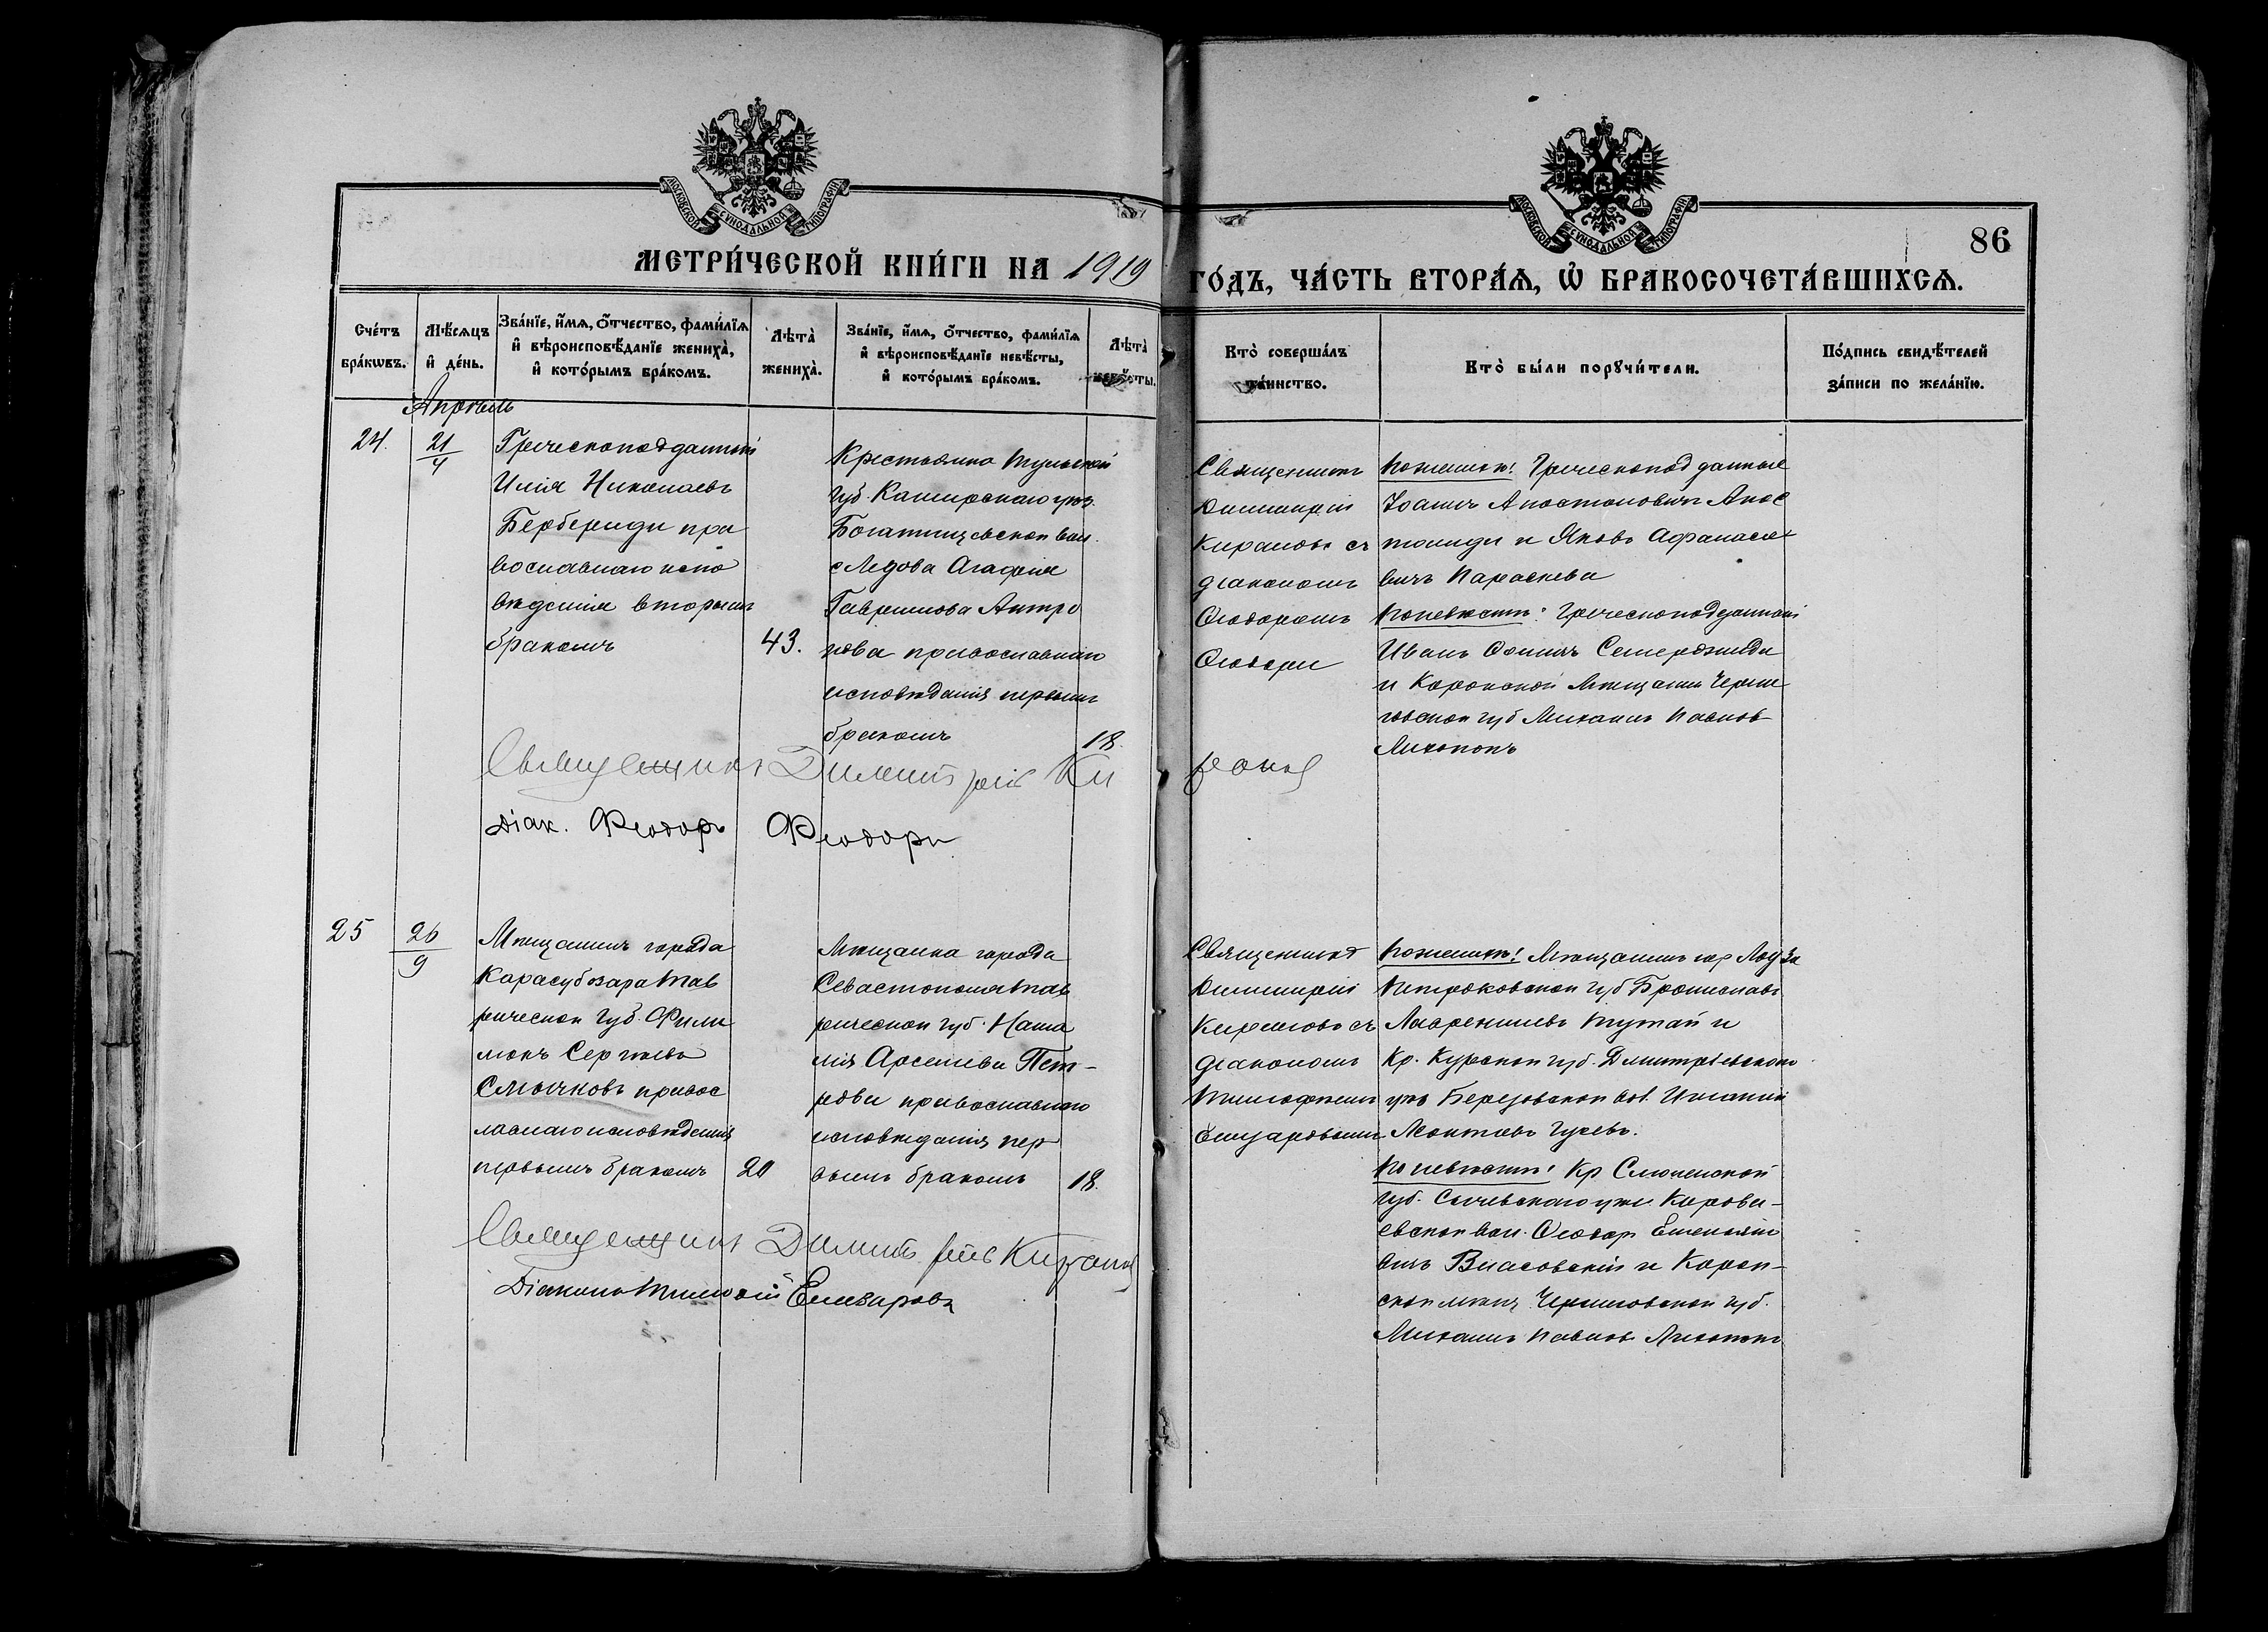 МОСКОВСКОЙ СѴНОДАЛЬНОЙ ТИПОГРАФІИ
МОСКОВСКОЙ СѴНОДАЛЬНОЙ ТИПОГРАФІИ
86
МЕТРИ́ЧЕСКОЙ КНИ́ГИ НА 1919
ГО́ДЪ, ЧА́СТЬ ВТОРА́Ѧ, Ѽ БРАКОСОЧЕТА́ВШИХСѦ.
Сче́тъ бра́кѡвъ.
Мѣ́сѧцъ и҆ де́нь.
Зва́нїе, и҆́мѧ, ѻ҆́тчество, фами́лїѧ
и҆ вѣроисповѣ́данїе жениха̀,
и҆ кото́рымъ бра́комъ.
Лѣта̀ жениха̀.
Зва́нїе, и҆́мѧ, ѻ҆́тчество, фами́лїѧ
и҆ вѣроисповѣ́данїе невѣ́сты,
и҆ кото́рымъ бра́комъ.
Лѣта̀ невѣ́сты.
Кто̀ соверша́лъ
та́инство.
Кто̀ бы́ли порꙋчи́тели.
По́дпись свидѣ́телей
за́писи по жела́нїю.
Апрѣль
24.
21
4
Греческоподданный
Илія Николаевъ
Бербериди пра
вославнаго испо
вѣданія вторымъ
бракомъ
43.
Крестьянка Тульской
губ. Каширскаго уѣз.
Богатищевской вол.
с Ледова Агафия
Гаврилова Антро
пова православнаго
исповѣданія первымъ
бракомъ
18.
Священникъ
Димитрій
Кирановъ съ
діакономъ
Ѳеодоромъ
Ѳеодори
По женихѣ: Греческоподданные
Іоаннъ Апостоловичъ Апос
толиди и Яковъ Афанасіе
вичъ Параскева
По невѣстѣ: Греческоподданный
Иванъ
и Коропской мѣщанин Черни
говской губ Михаилъ Павлов
Лихопой
Священникъ Димитрій Ки
рановъ
Діак. Ѳеодоръ Ѳеодори
25
26
9
Мѣщанинъ города
Карасубазара Тав
рической губ. Фили
монъ Сергѣевъ
Смычковъ правос
лавнаго исповѣданія
первымъ бракомъ
20
Мѣщанка города
Севастополя Тав
рической губ. Ната
лія Арсеніева Пет-
рова православнаго
исповѣданія пер
вымъ бракомъ
18.
Священникъ
Димитрій
Кирановъ съ
діакономъ
Тимофеемъ
Елизаровымъ
По женихѣ: Мѣщанинъ гор Лодзи
Петроковской губ Брониславъ
Лаврентіевъ Тутай и
Кр. Курской губ. Дмитріевскаго
уѣз Березовской вол. Игнатій
Леонтіевъ Гусевъ.
По невѣстѣ: Кр Смоленской
губ. Сычевскаго уѣзд.
евской вол. Ѳеодор Емельяно
вичъ Власовскій и Короп-
ской мѣщ. Черниговской губ.
Михаилъ Павлов Лихопой
Священникъ Димитрій Кирановъ
Діаконъ Тимофей Елизаровъ